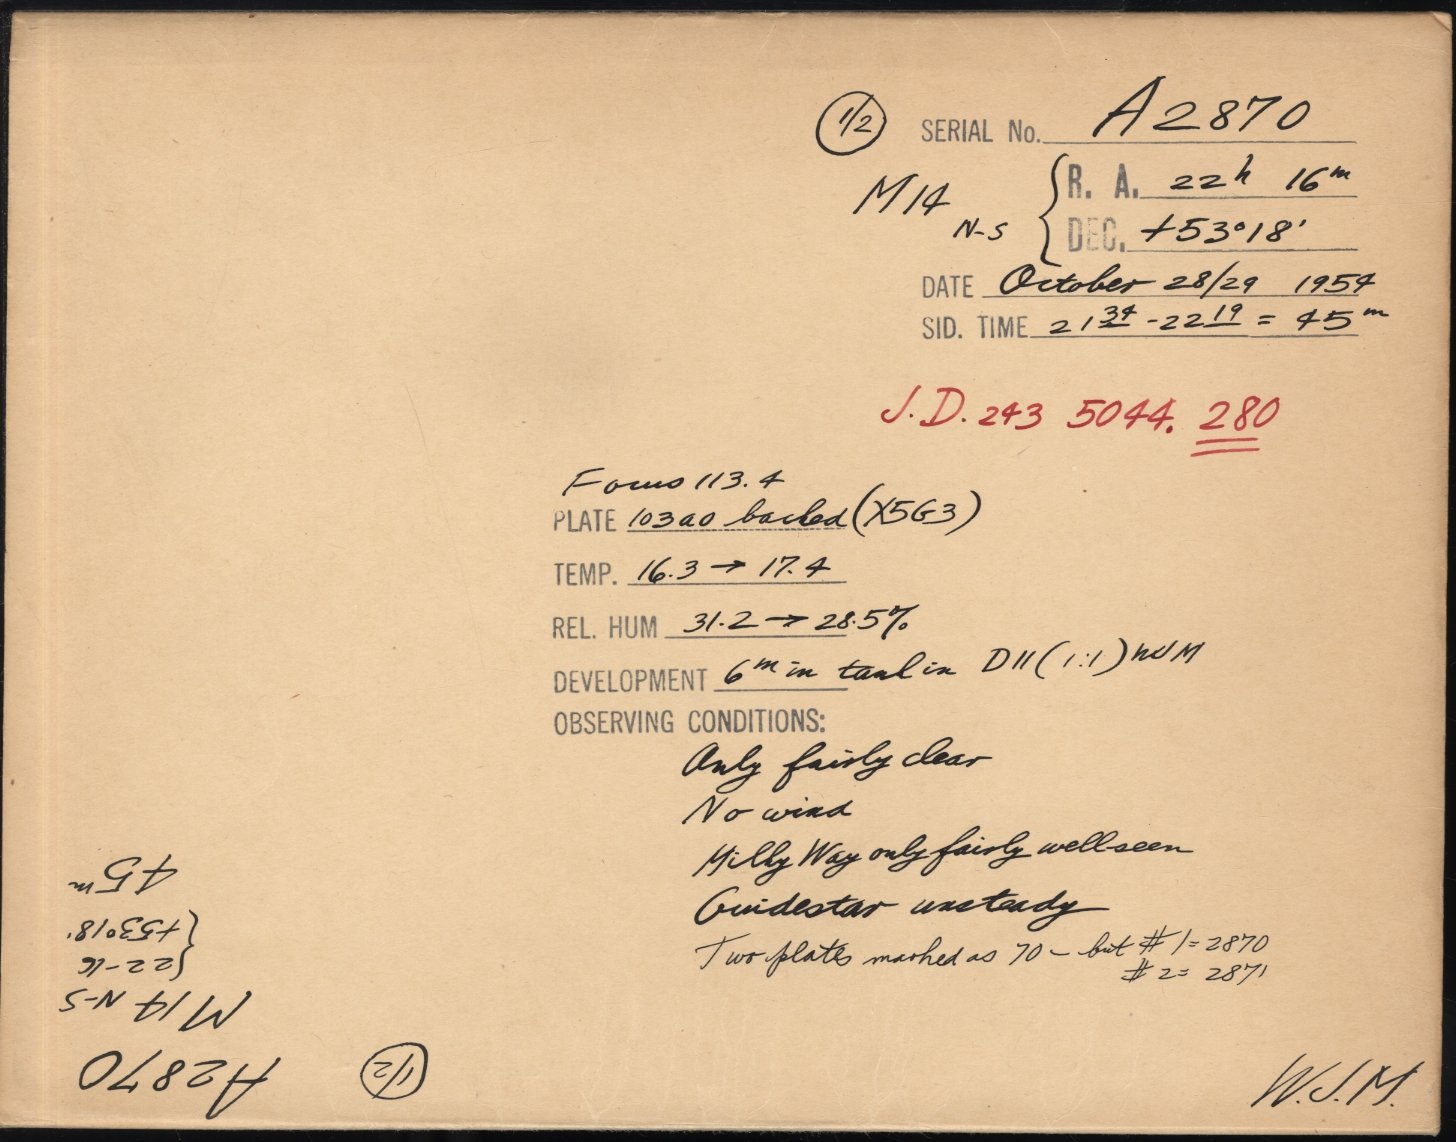 1/2 SERIAL No. A2870
M14 N-S { R. A. 22h 16m
DEC. +53°18'
DATE October 28/29 1954
SID. TIME 21 34 - 22 19 = 45m
J.D. 243 5044. 280
Focus 113.4
PLATE 103a0 backed (X5G3)
TEMP. 16.3 → 17.4
REL. HUM 31.2 → 28.5%
DEVELOPMENT 6m in tank in D11 (1:1)
OBSERVING CONDITIONS:
Only fairly clear
No wind
Milky Way only fairly well seen
Guidestar unsteady
Two plates marked as 70 - but # 1 = 2870
# 2 = 2871
W.J.M.
A2870 1/2
M14 N-S
{ 22-16
+53°18'
45m